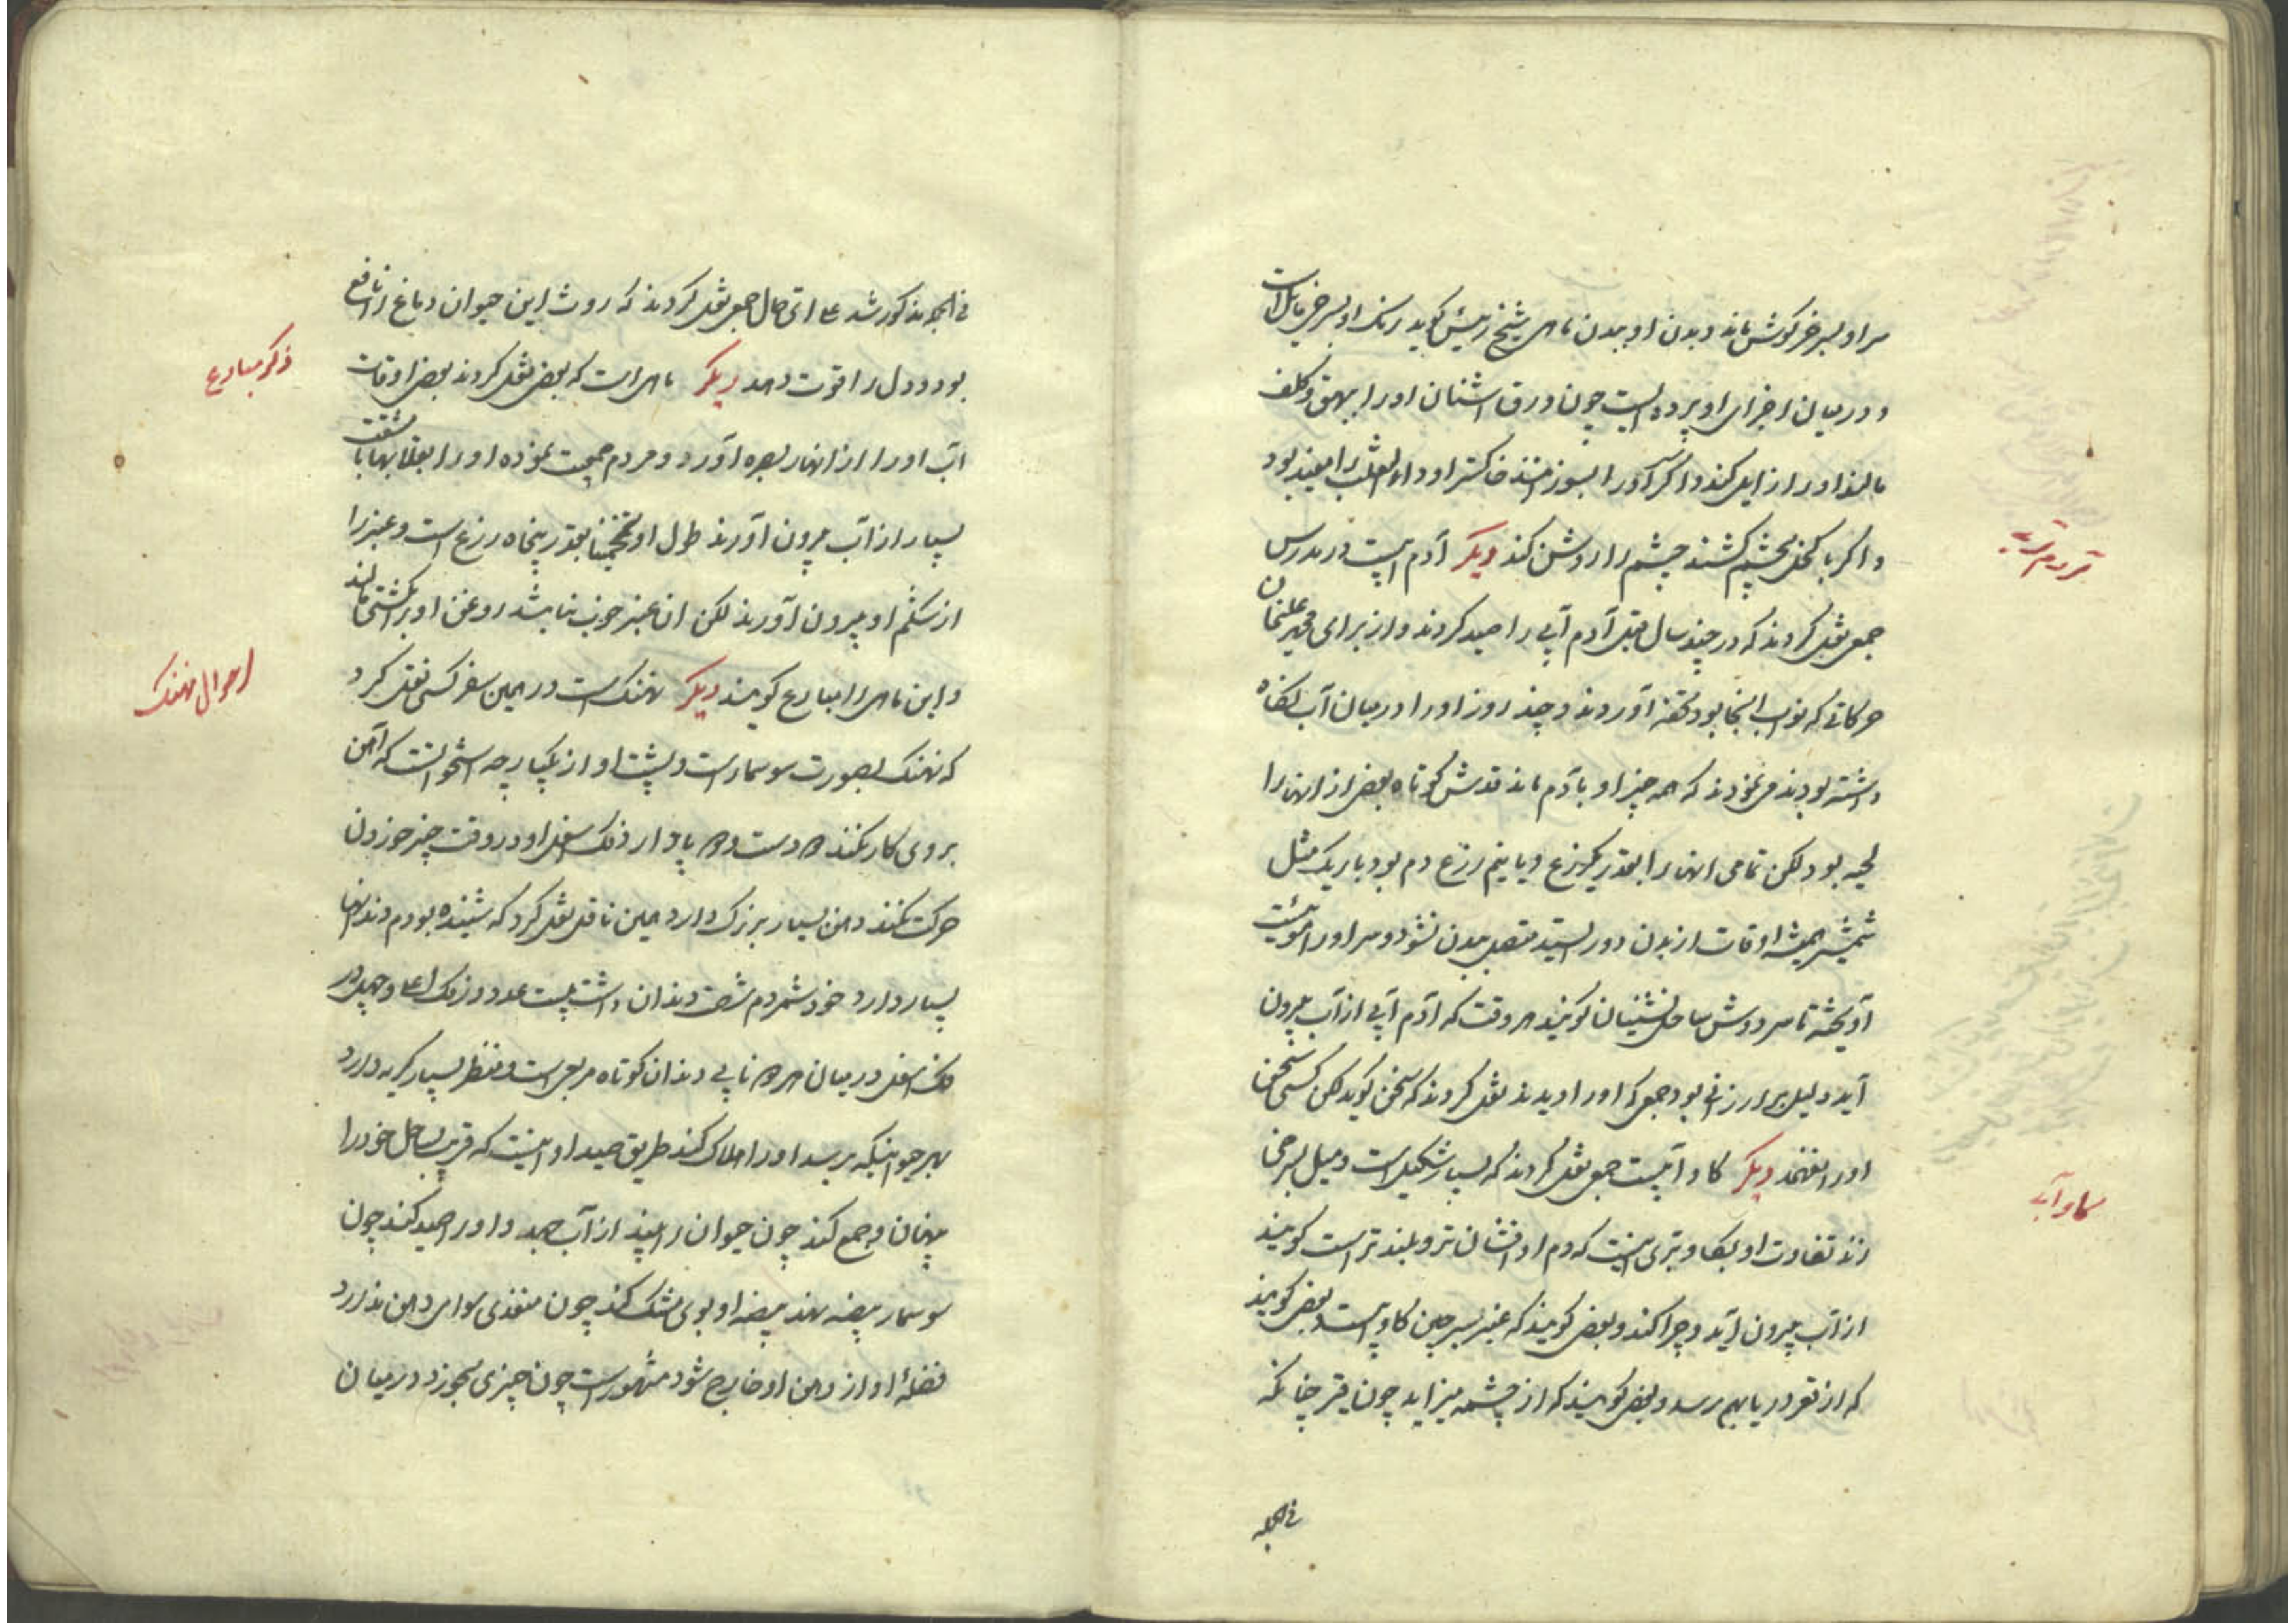 سر او بسر خرگوش ماند و بدن او ببدن ماهی شیخ رئیس کوید رنک او بسرخی مایل است
و در میان اجزای او پرده ایست چون ورق اشنان او را ببهق و کلف
مالند او را زایل کند و اکر سر او را بسوزانند خاکستر او داء الثعلب را مفید بود
و اکر با کحل بچشم کشند چشم را روشن کند دیکر آدم آبیست در مدرس
جمعی نقل کردند که در چند سال قبل آدم آبی را صید کردند و از برای محمد علیخان
حرکاتی که نواب انجا بود تحفه آوردند و چند روز او را در میان آب نکاه
داشته بودند می نمودند که همه چیز او بآدم ماند قدش کوتاه بعضی از انها را
لحیه بود لکن تمامی انها را بقدر یکذرع و یا نیم ذرع دم بود باریک مثل
شمشیر همیشه اوقات از بدن دور ایستد متصل ببدن نشود و سر او را موئیست
آویخته تا سر دوش ساحل نشینان کویند هر وقت که آدم آبی از آب بیرون
آید دلیل بر ارزانی بود جمعی که او را دیدند نقل کردند که سخن کوید لکن کسی سخن
او را نفهمد دیکر کاو آبیست جمعی نقل کردند که بسیار شکیل است و میل بسرخی
زند تفاوت او بکاو بری اینست که دم او افشان تر و بلندتر است کویند
از آب بیرون آید و چرا کند و بعضی کویند که عنبر سرچین کاو است و بعضی کویند
که از قعر دریا بهم رسد و بعضی کویند که از چشمه میزاید چون قیر چنانکه
فی الجمله
کاو آبی
فی الجمله مذکور شد علی ای حال جمعی نقل کردند که روث این حیوان دماغ را نافع
بود و دل را قوت دهد دیکر ماهی است که بعضی نقل کردند بعضی اوقات
آب او را از انهار بصره آورد و مردم جمعیت نموده او را بقلابها با مشقت
بسیار از آب بیرون آورند طول او تخمینا بقدر پنجاه ذرع است و عنبر را
از شکم او بیرون آورند لکن ان عنبر خوب نباشد روغن او بر کشتی مالند
و این ماهی را مبادرع کویند دیکر نهنک است در همین سفر کسی نقل کرد
که نهنک بصورت سوسمار است و پشت او از یکپارچه استخوانست که آهن
بروی کار نکند دو دست و دو پا دارد فک اسفل او در وقت چیز خوردن
حرکت نکند دهن بسیار بزرک دارد همین ناقل نقل کرد که شنیده بودم دندانها
بسیار دارد خود شمردم شصت دندان داشت بیست عدد در فک اعلی و چهل در
فک اسفل در میان هر دو نابی دندان کوتاه مربعی است و منظر بسیار کریه دارد
بهر حیوانیکه برسد او را هلاک کند طریق صید او اینست که قریب بساحل خود را
پنهان و جمع کند چون حیوان را بیند از آب جهد و او را صید کند چون
سوسمار بیضه نهد بیضه او بوی مشک کند چون منفذی سوای دهن ندارد
فضله او از دهن او خارج شود مشهور است چون چیزی بخورد در میان
ذکر مبادرع
احوال نهنک